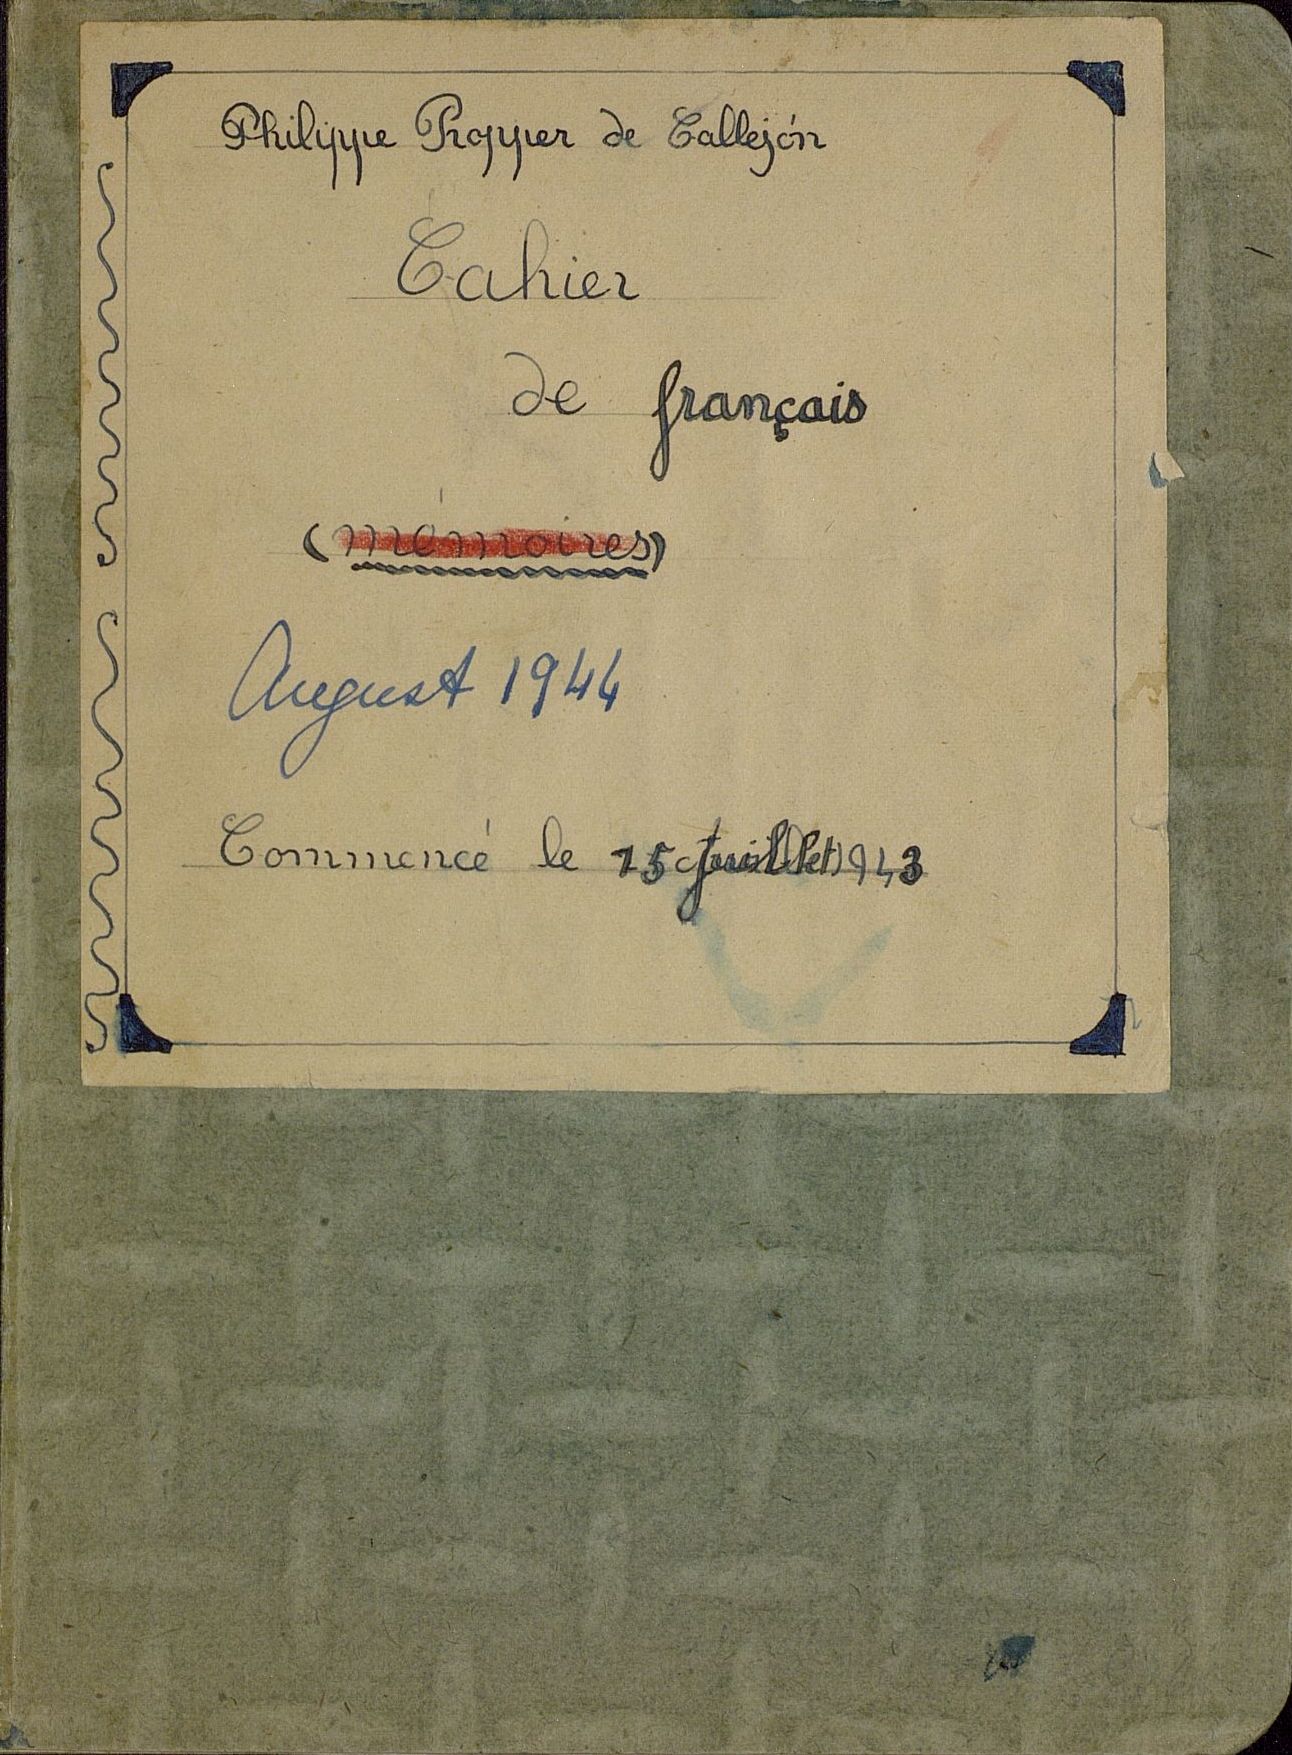 Philippe Propper de Callejón
Cahier
de français
(mémoires)
August 1944
Commencé le 15 Juillet 1943